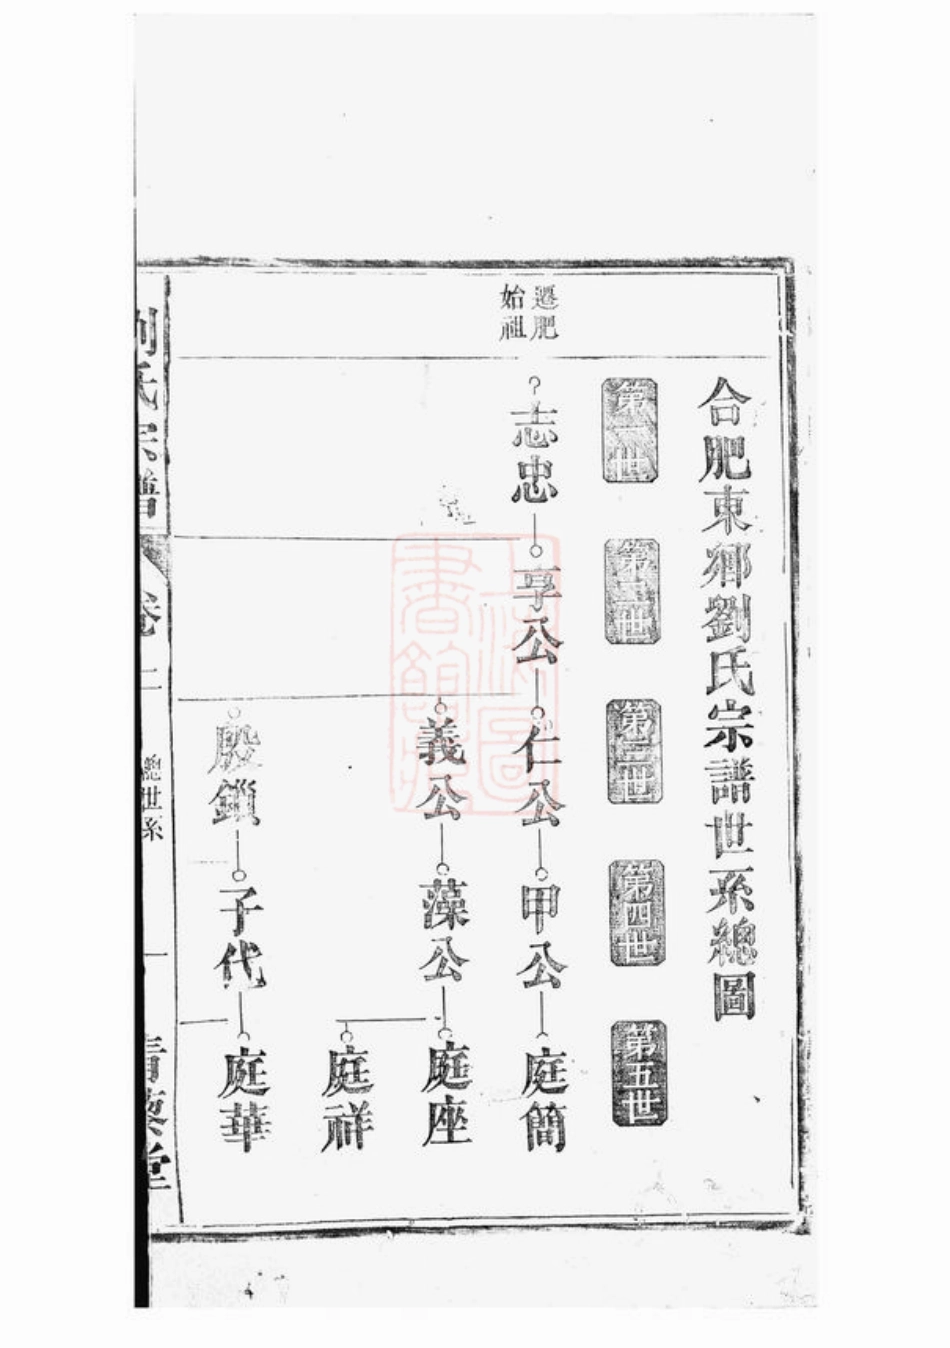 合肥東鄉劉氏宗譜世系總圖
第一世
第二世
第三世
第四世
第五世
遷肥
始祖
志忠
享公
仁公
甲公
庭簡
義公
藻公
庭座
庭祥
殷鎖
子代
庭華
劉氏宗譜
卷二
總世系
一